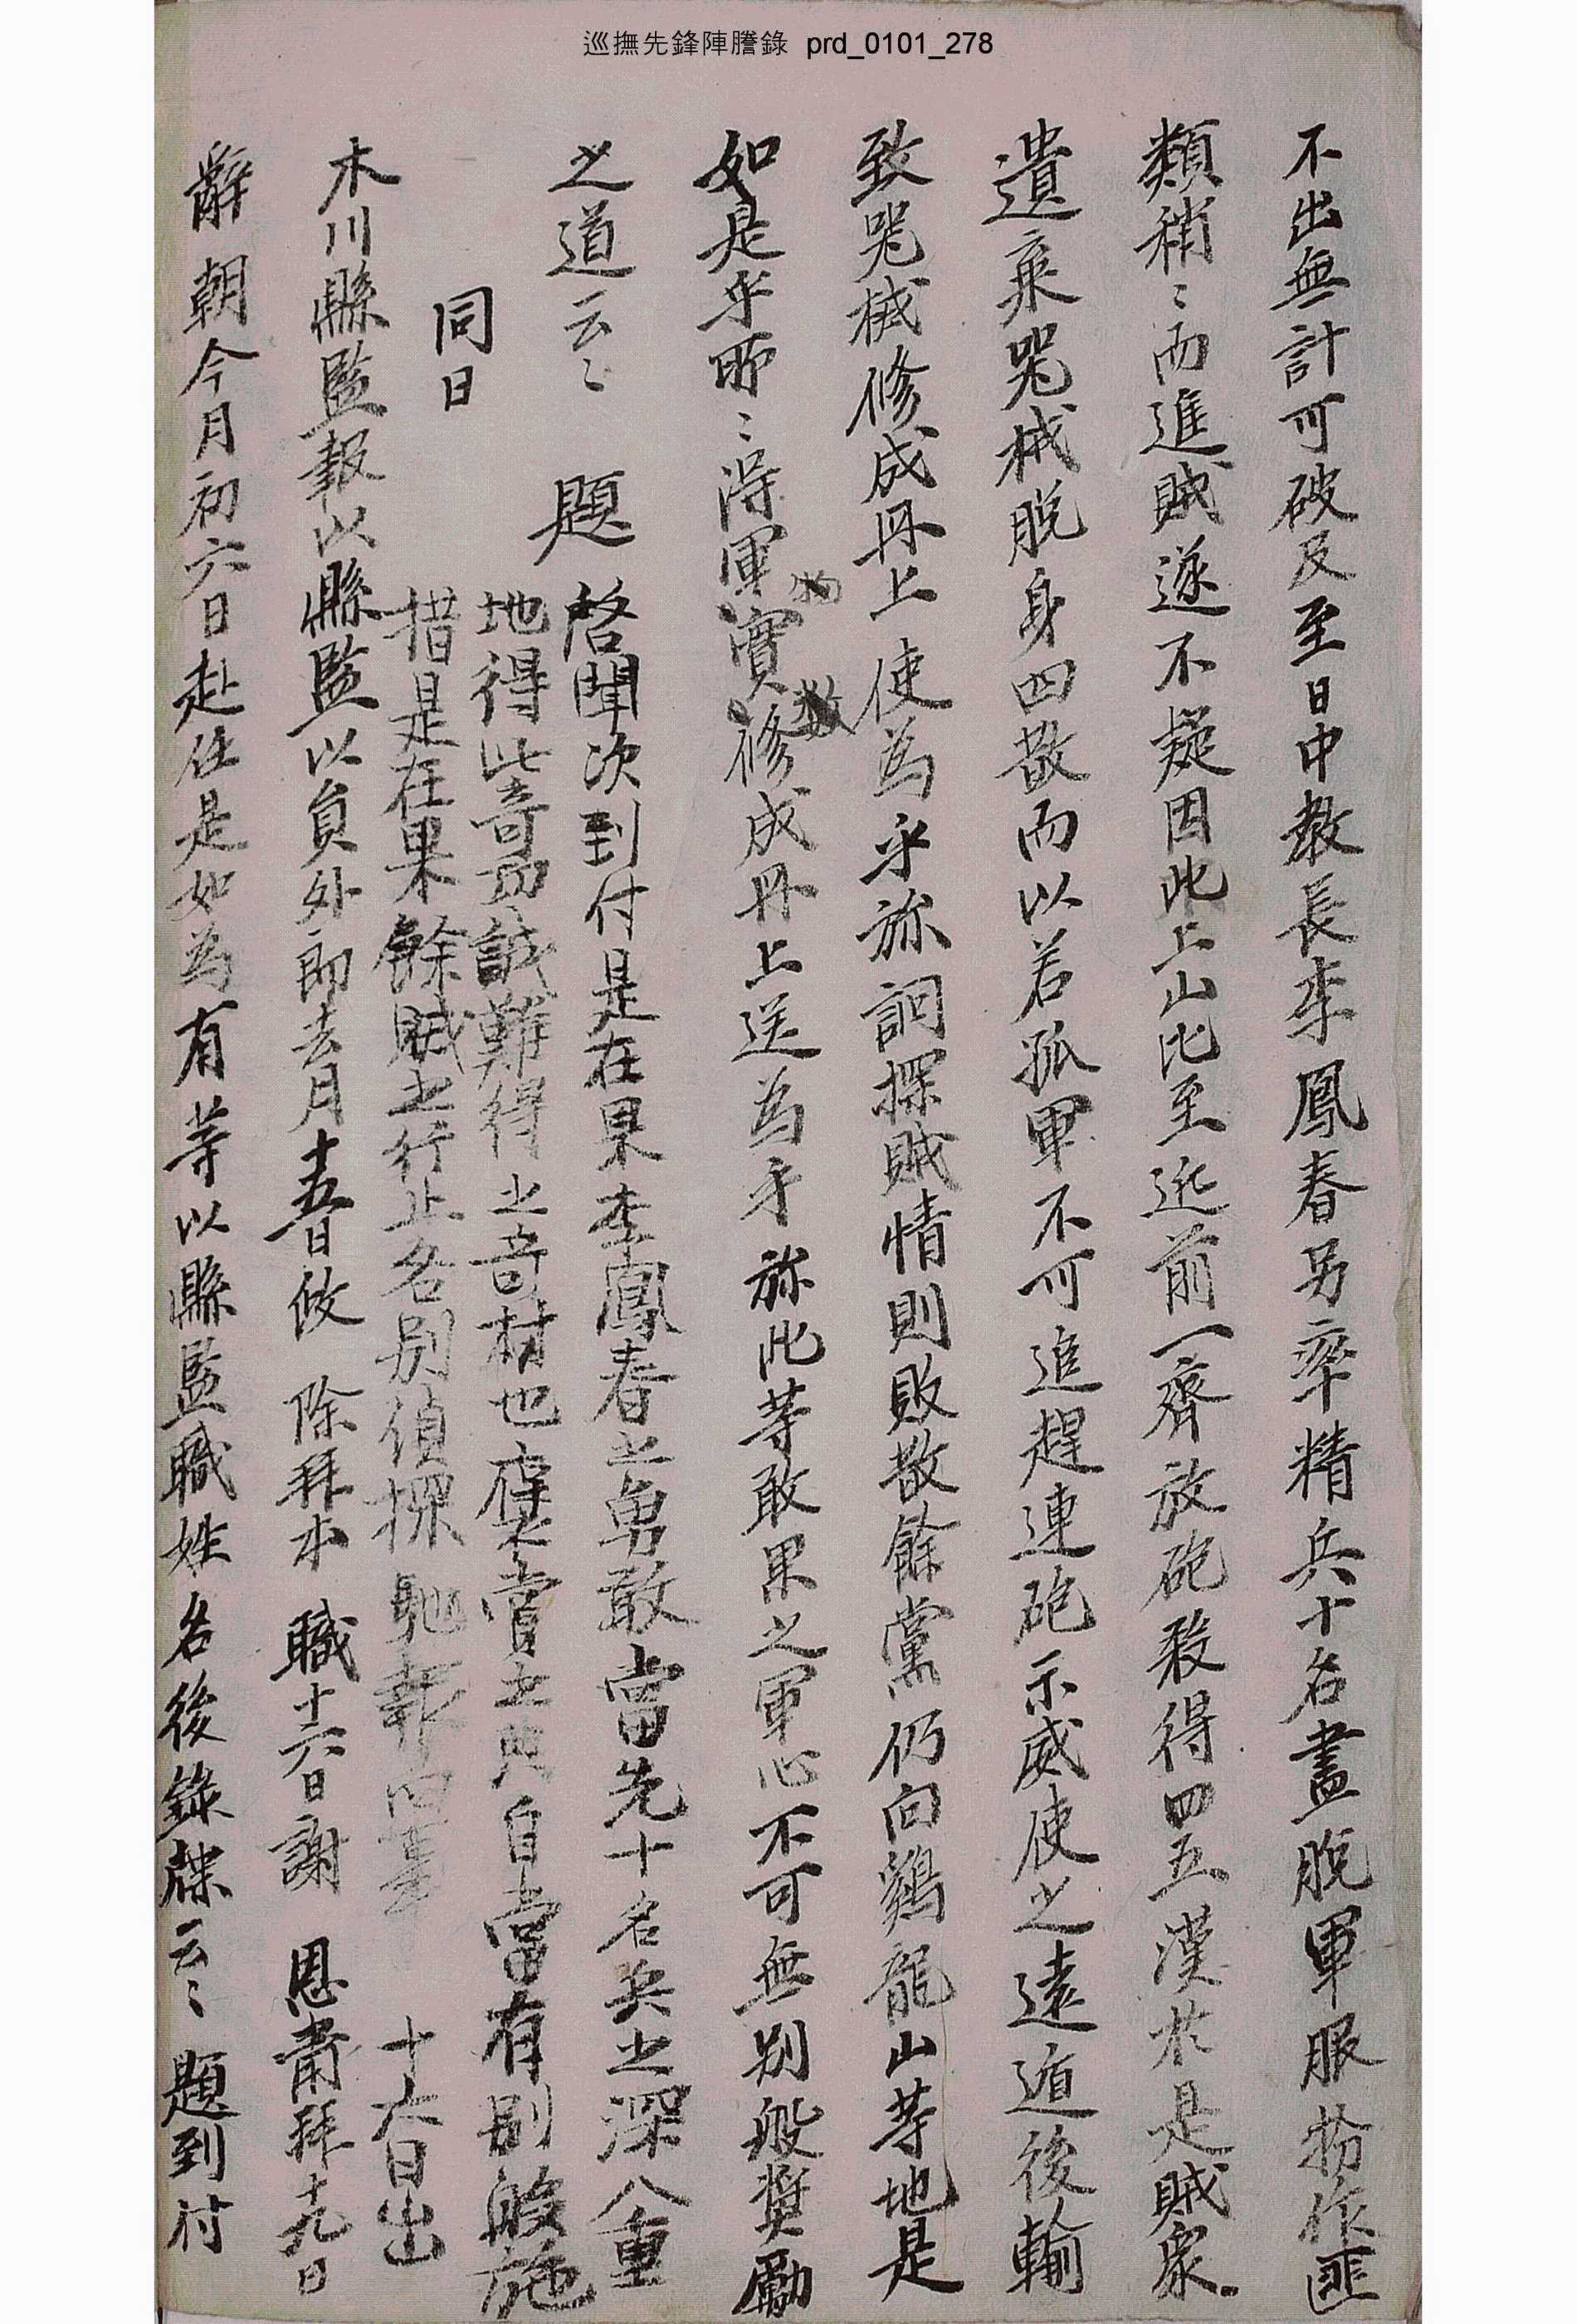 巡撫先鋒陣謄錄 prd_0101_278
不出無計可破及至日中敎長李鳳春另率精兵十名盡脫軍服扮作匪
類稍〻而進賊遂不疑因此上山比至近前一齊放砲殺得四五漢於是賊衆
遺棄器械脫身四散而以若孤軍不可追趕連砲示威使之遠遁後輸
致器械修成冊上使爲乎旀詗探賊情則敗散餘黨仍向鷄龍山等地是
如是乎所〻得軍實修成冊上送爲乎旀此等敢果之軍心不可無別般奬勵
之道云〻 題 啓聞次到付是在果李鳳春之勇敢當先十名兵之深入重
地得此奇功誠難得之奇材也廩賞之典自當有別般施
措是在果餘賊之行止各別偵探馳報向事 十六日出
同日
木川縣監報以縣監以員外郞去月十五日 除拜本職十六日謝 恩肅拜十九日
辭朝今月初六日赴任是如爲有等以縣監職姓名後錄牒云〻題到付